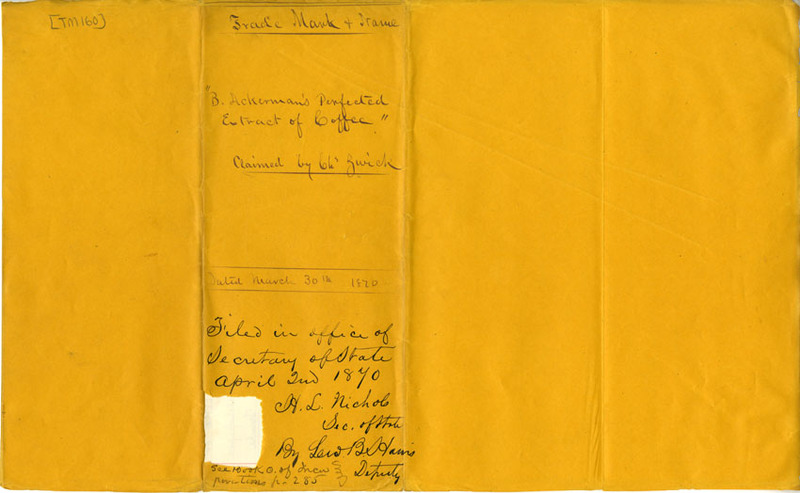 [TM160]
Trade Mark & Name
"B. Ackerman's Perfected
Extract of Coffee"
Claimed by Chs Zwick
Dated March 30th 1870
Filed in office of
Secretary of State
April 2nd 1870
H. L. Nichols
Sec. of State
By Lew B. Harris
Deputy
See Book O. of Incor
porations p. 285